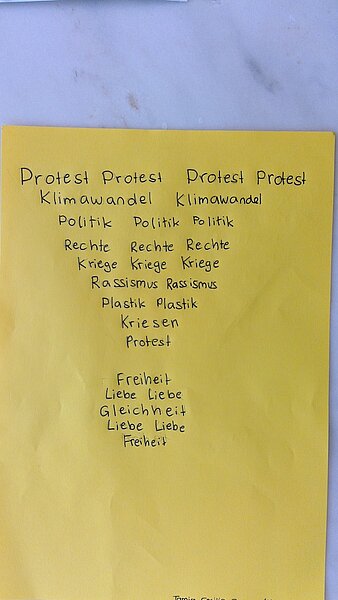 Protest Protest Protest Protest
Klimawandel Klimawandel
Politik Politik Politik
Rechte Rechte Rechte
Kriege Kriege Kriege
Rassismus Rassismus
Plastik Plastik
Kriesen
Protest
Freiheit
Liebe Liebe
Gleichheit
Liebe Liebe
Freiheit